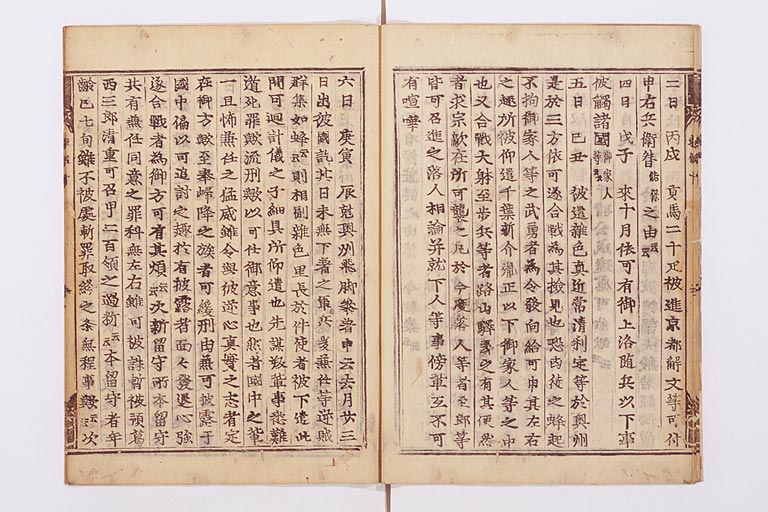 二日丙戌 貢馬二十疋被進京都解文等可付
申右兵衛督能保之由云云
四日戊子 來十月依可有御上洛随兵以下事
被觸諸國御家人等云云
五日己丑 被遣雜色真近常清利定等於奥州
是於三方依可遂合戰為其撿見也恐凶徒之蜂起
不拘御家人等之武勇者為令發向給可申其左右
之趣所被仰遣千葉新介胤正以下御家人等之中
也又合戰大躰至歩兵等者路山驛之有其便
者求宗敵在所可襲之凡於今度落人等者至郎等
皆可召進之落人相論并就下人等事傍軍互不可
有喧嘩
六日庚寅 辰剋奥州飛脚参着申云去月廿三
日出彼國訖其日未無下着之軍兵兼任等逆賊
群集如蜂云云則相副雜色里長於件使者被下遣此
間可廻計儀之子細具所仰遣也先謀叛輩事悉難
道死罪歟流刑歟以可仕御意事也然者國中之輩
一旦怖兼任之猛威雖令與彼逆心真實之志者定
在御方歟至奉歸降之族者可緩刑由兼可披露于
國中偏以可追討之趣於有披露者面々發退心強
遂合戰者為御方可有其煩云云次新留守所本留守
共有兼任同意之罪科無左右雖可被誅暫被預葛
西三郎清重可召甲二百領之過料云云本留守者年
齡已七旬雖不被處斬罪取終之条無程事歟云云次